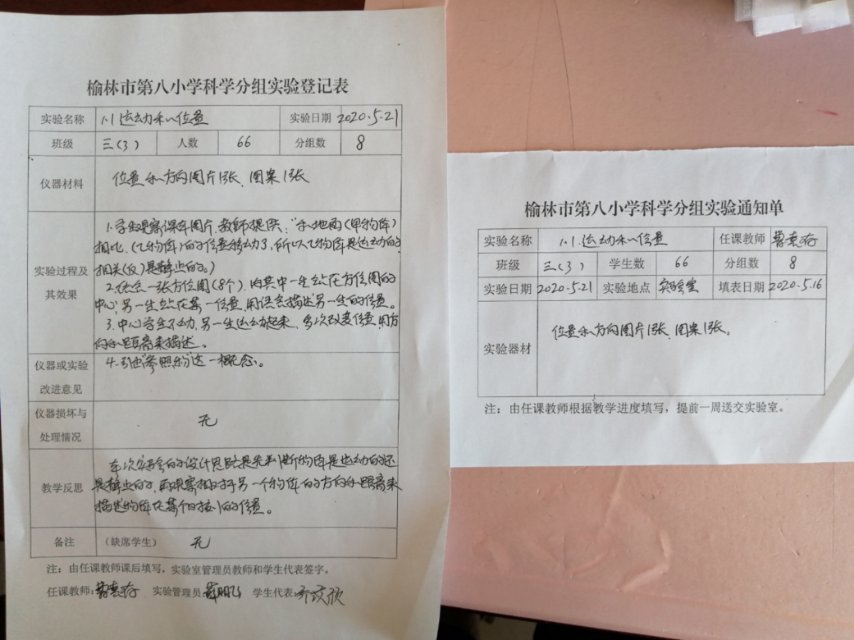 榆林市第八小学科学分组实验登记表
实验名称 1.1运动和位置 实验日期 2020.5.21
班级 三(3) 人数 66 分组数 8
仪器材料 位置和方向图片1张、图案1张
实验过程及其效果
1.学生观察课本图片,教师提供:"和地面(甲物体)
相比,(乙物体)的位置移动了,所以乙物体是运动的,
相关(反)是静止的。)
2.
一张方位图(8个),由其中一生站在方位图的
中心,另一生站在某一位置,用语言描述另一生的位置。
3.中心学生不动,另一生运动起来,多次改变位置,用方
向和距离来描述。
仪器或实验改进意见
4.引出"参照物"这一概念。
仪器损坏与处理情况 无
教学反思
本次实验的设计思路是先判断物体是运动的还
是静止的,再观察相对于另一个物体的方向和距离来
描述物体在某个时刻的位置。
备注 (缺席学生) 无
注:由任课教师课后填写,实验室管理员教师和学生代表签字。
任课教师: 实验管理员: 学生代表:
榆林市第八小学科学分组实验通知单
实验名称 1.1.运动和位置 任课教师
班级 三(3) 学生数 66 分组数 8
实验日期 2020.5.21 实验地点 实验室 填表日期 2020.5.16
实验器材 位置和方向图片1张、图案1张。
注:由任课教师根据教学进度填写,提前一周送交实验室。